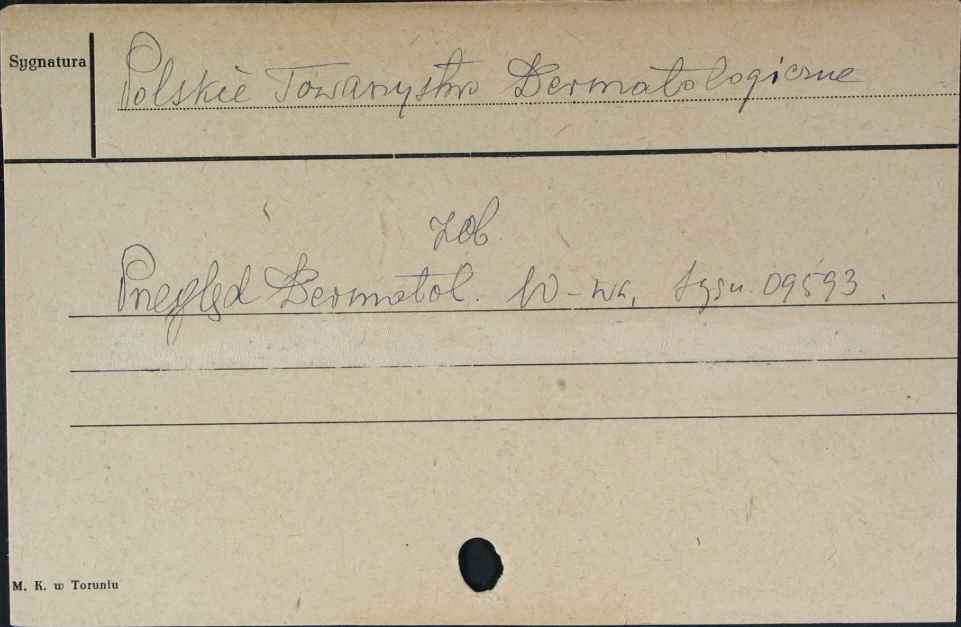 Sygnatura
Polskie Towarzystwo Dermatologiczne
zob.
Przegląd Dermatol. W-wa, sygn. 09593.
M. K. w Toruniu